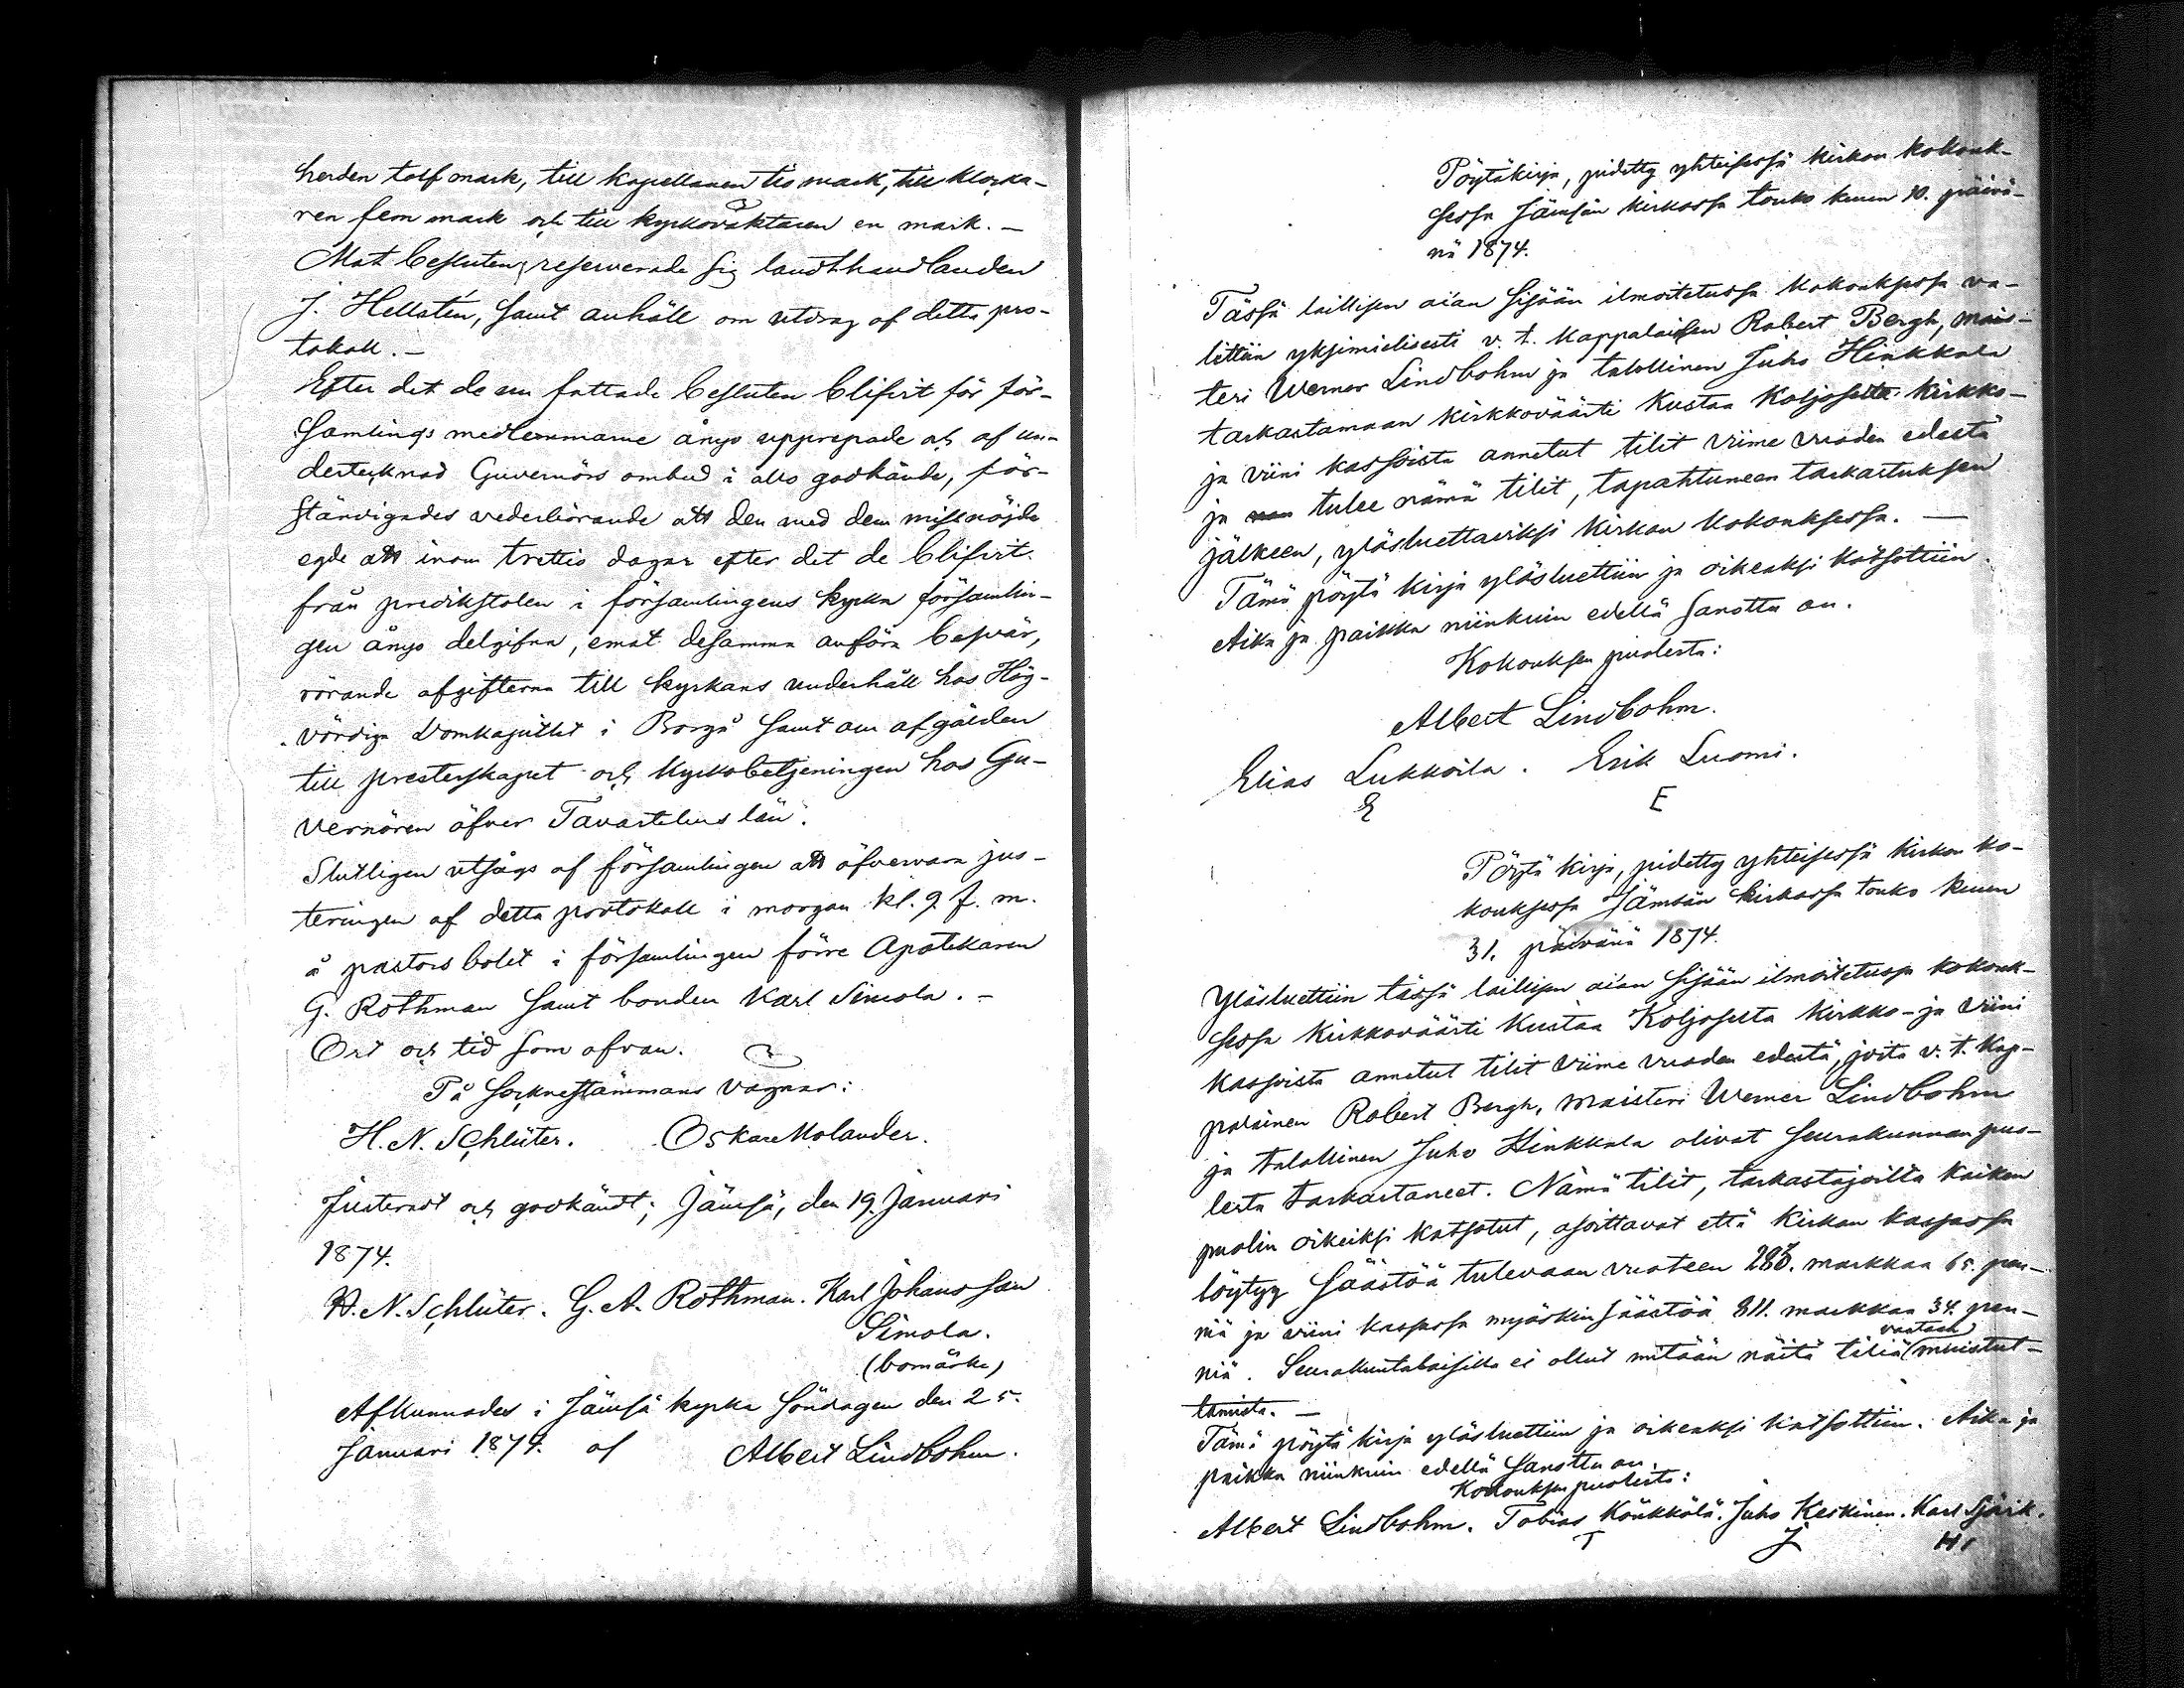 herden tolf mark, till kapellanen tio mark, till klocka-
ren fem mark och till kyrkovaktaren en mark. –
Mot besluten reserverade sig landthandlanden
J. Hellstén, samt anhöll om utdrag af detta pro-
tokoll. –
Efter det de nu fattade besluten blifvit för för-
samlings medlemmarne ånyo upprepade och af un-
dertecknad Guvernörs ombud i allo godkända, för-
ständigades vederbörande att den med dem missnöjde
egde att inom trettio dagar efter det de blifvit
från predikstolen i församlingens kyrka församlin-
gen ånyo delgifna, emot desamma anföra besvär,
rörande afgifterna till kyrkans underhåll hos Hög-
vördiga Domkapitlet i Borgå samt om afgälden
till presterskapet och kyrkobetjeningen hos Gu-
vernören öfver Tavastehus län.
Slutligen utsågs af församlingen att öfvervara jus-
teringen af detta protokoll i morgon kl. 9 f. m.
å pastorsbolet i församlingen förre Apotekaren
G. Rothman samt bonden Karl Simola. –
Ort och tid som ofvan.
På Socknestämmans vägnar:
H. N. Schlüter. Oskar Molander.
Justeradt och godkändt; Jämsä, den 19. Januari
1874.
H. N. Schlüter. G. A. Rothman. Karl Johansson
Simola.
(bomärke)
Afkunnades i Jämsä kyrka Söndagen den 25.
Januari 1874. af Albert Lindbohm.
Pöytäkirja, pidetty yhteisessä kirkon kokouk-
sessa Jämsän kirkossa touko kuun 10. päivä-
nä 1874.
Tässä laillisen aian sisään ilmoitetussa kokouksessa va-
littiin yksimielisesti v. t. kappalaisen Robert Bergh, mais-
teri Werner Lindbohm ja talollinen Juho Hinkkala
tarkastamaan kirkkoväärti Kustaa Koljoselta kirkko-
ja viini kassoista annetut tilit viime vuoden edestä
ja tulee nämä tilit, tapahtuneen tarkastuksen
jälkeen, ylösluettaviksi kirkon kokouksessa. –
Tämä pöytä kirja ylösluettiin ja oikeaksi katsottiin.
Aika ja paikka niinkuin edellä sanottu on.
Kokouksen puolesta:
Albert Lindbohm.
Elias Lukkoila. Erik Luomi.
E E
Pöytä kirja, pidetty yhteisessä kirkon ko-
kouksessa Jämsän kirkossa touko kuun
31. päivänä 1874.
Ylösluettiin tässä laillisen aian sisään ilmoitetussa kokouk-
sessa kirkkoväärti Kustaa Koljoselta kirkko- ja viini
kassoista annetut tilit viime vuoden edestä, joita v. t. kap-
palainen Robert Bergh, maisteri Werner Lindbohm
ja talollinen Juho Hinkkala olivat seurakunnan puo-
lesta tarkastaneet. Nämä tilit, tarkastajoilta kaiken
puolin oikeiksi katsotut, osoittavat että kirkon kassassa
löytyy säästöä tulevaan vuoteen markkaa 65. pen-
niä ja viini kassassa myöskin säästöä 811. markkaa 34. pen-
niä. Seurakuntalaisilla ei ollut mitään näitä tiliä vastaan muistut-
tamista. –
Tämä pöytä kirja ylösluettiin ja oikeaksi katsottiin. Aika ja
paikka niinkuin edellä sanottu on.
Kokouksen puolesta:
Albert Lindbohm. Tobias Könkkölä. Juho Keskinen. Karl Sjörik.
T J H